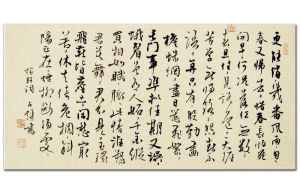 更能消幾番風雨匆匆
春又歸去惜春長怕花
開早何況落紅無數春
且住見說道天涯
芳草無歸路怨春不
語算只有殷勤畫
簷蛛網盡日惹飛絮
長門事準擬佳期又誤
蛾眉曾有人妒千金縱
買相如賦脈脈此情誰訴
君莫舞君不見玉環
飛燕皆塵土閒愁最
苦休去倚危欄斜
陽正在煙柳斷腸處
稼軒詞